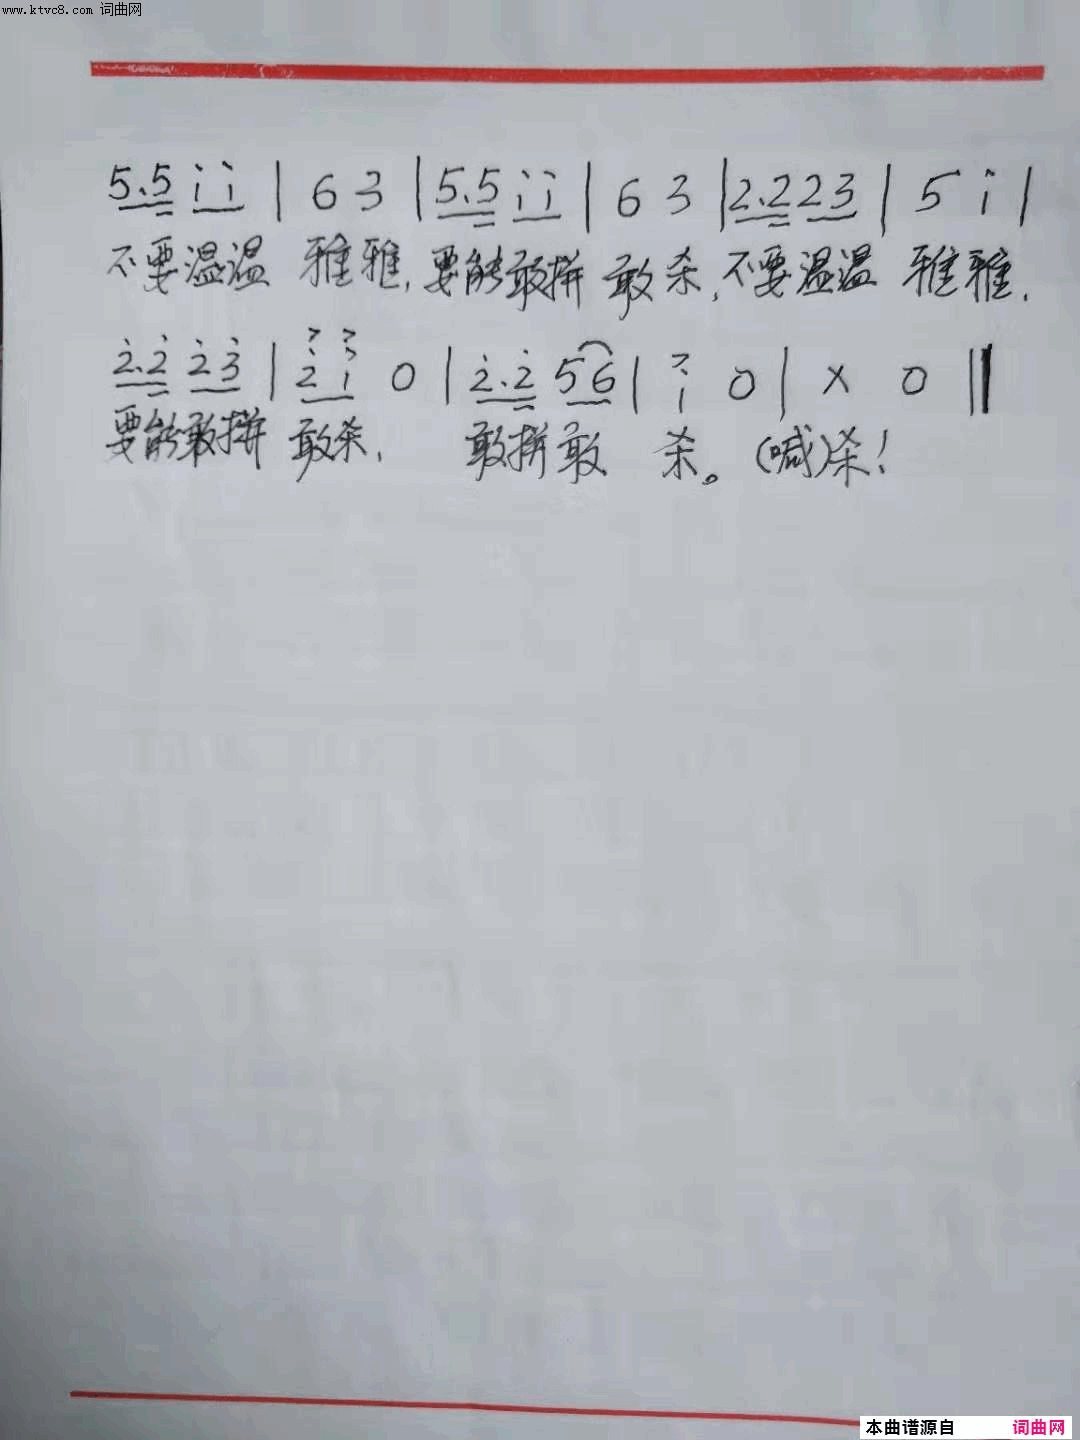 www.ktvc8.com 词曲网
5.5 i̇ i̇ | 6 3 | 5.5 i̇ i̇ | 6 3 | 2.2 2 3 | 5 i̇ |
不要温温 雅雅,要能敢拼 敢杀,不要温温 雅雅,
2̇.2̇ 2̇ 3̇ | 2̇ i̇ 0 | 2̇.2̇ 5 6 | i̇ 0 | X 0 ‖
要能敢拼 敢杀, 敢拼敢 杀。(喊)杀!
本曲谱源自 词曲网